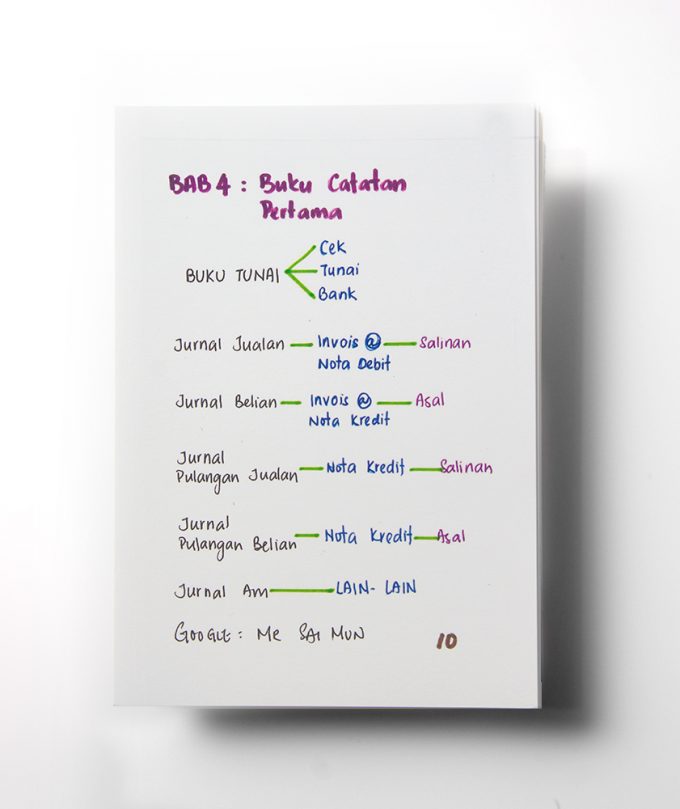 BAB 4 : Buku Catatan
Pertama
Cek
BUKU TUNAI Tunai
Bank
Jurnal Jualan Invois @ Salinan
Nota Debit
Jurnal Belian Invois @ Asal
Nota Kredit
Jurnal
Pulangan Jualan Nota Kredit Salinan
Jurnal
Pulangan Belian Nota Kredit Asal
Jurnal Am LAIN-LAIN
GOOGLE: MR SAI MUN
10